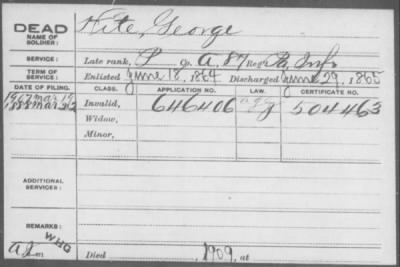 DEAD
NAME OF SOLDIER:
Kite, George
SERVICE:
Late rank, P Co. A, 87 Reg't Pa Inf
TERM OF SERVICE:
Enlisted June 18, 1864 Discharged June 29, 1865
DATE OF FILING. CLASS. APPLICATION NO. LAW. CERTIFICATE NO.
Invalid, 646406 504463
Widow,
Minor,
ADDITIONAL SERVICES:
REMARKS:
WHO
Died , 1909, at